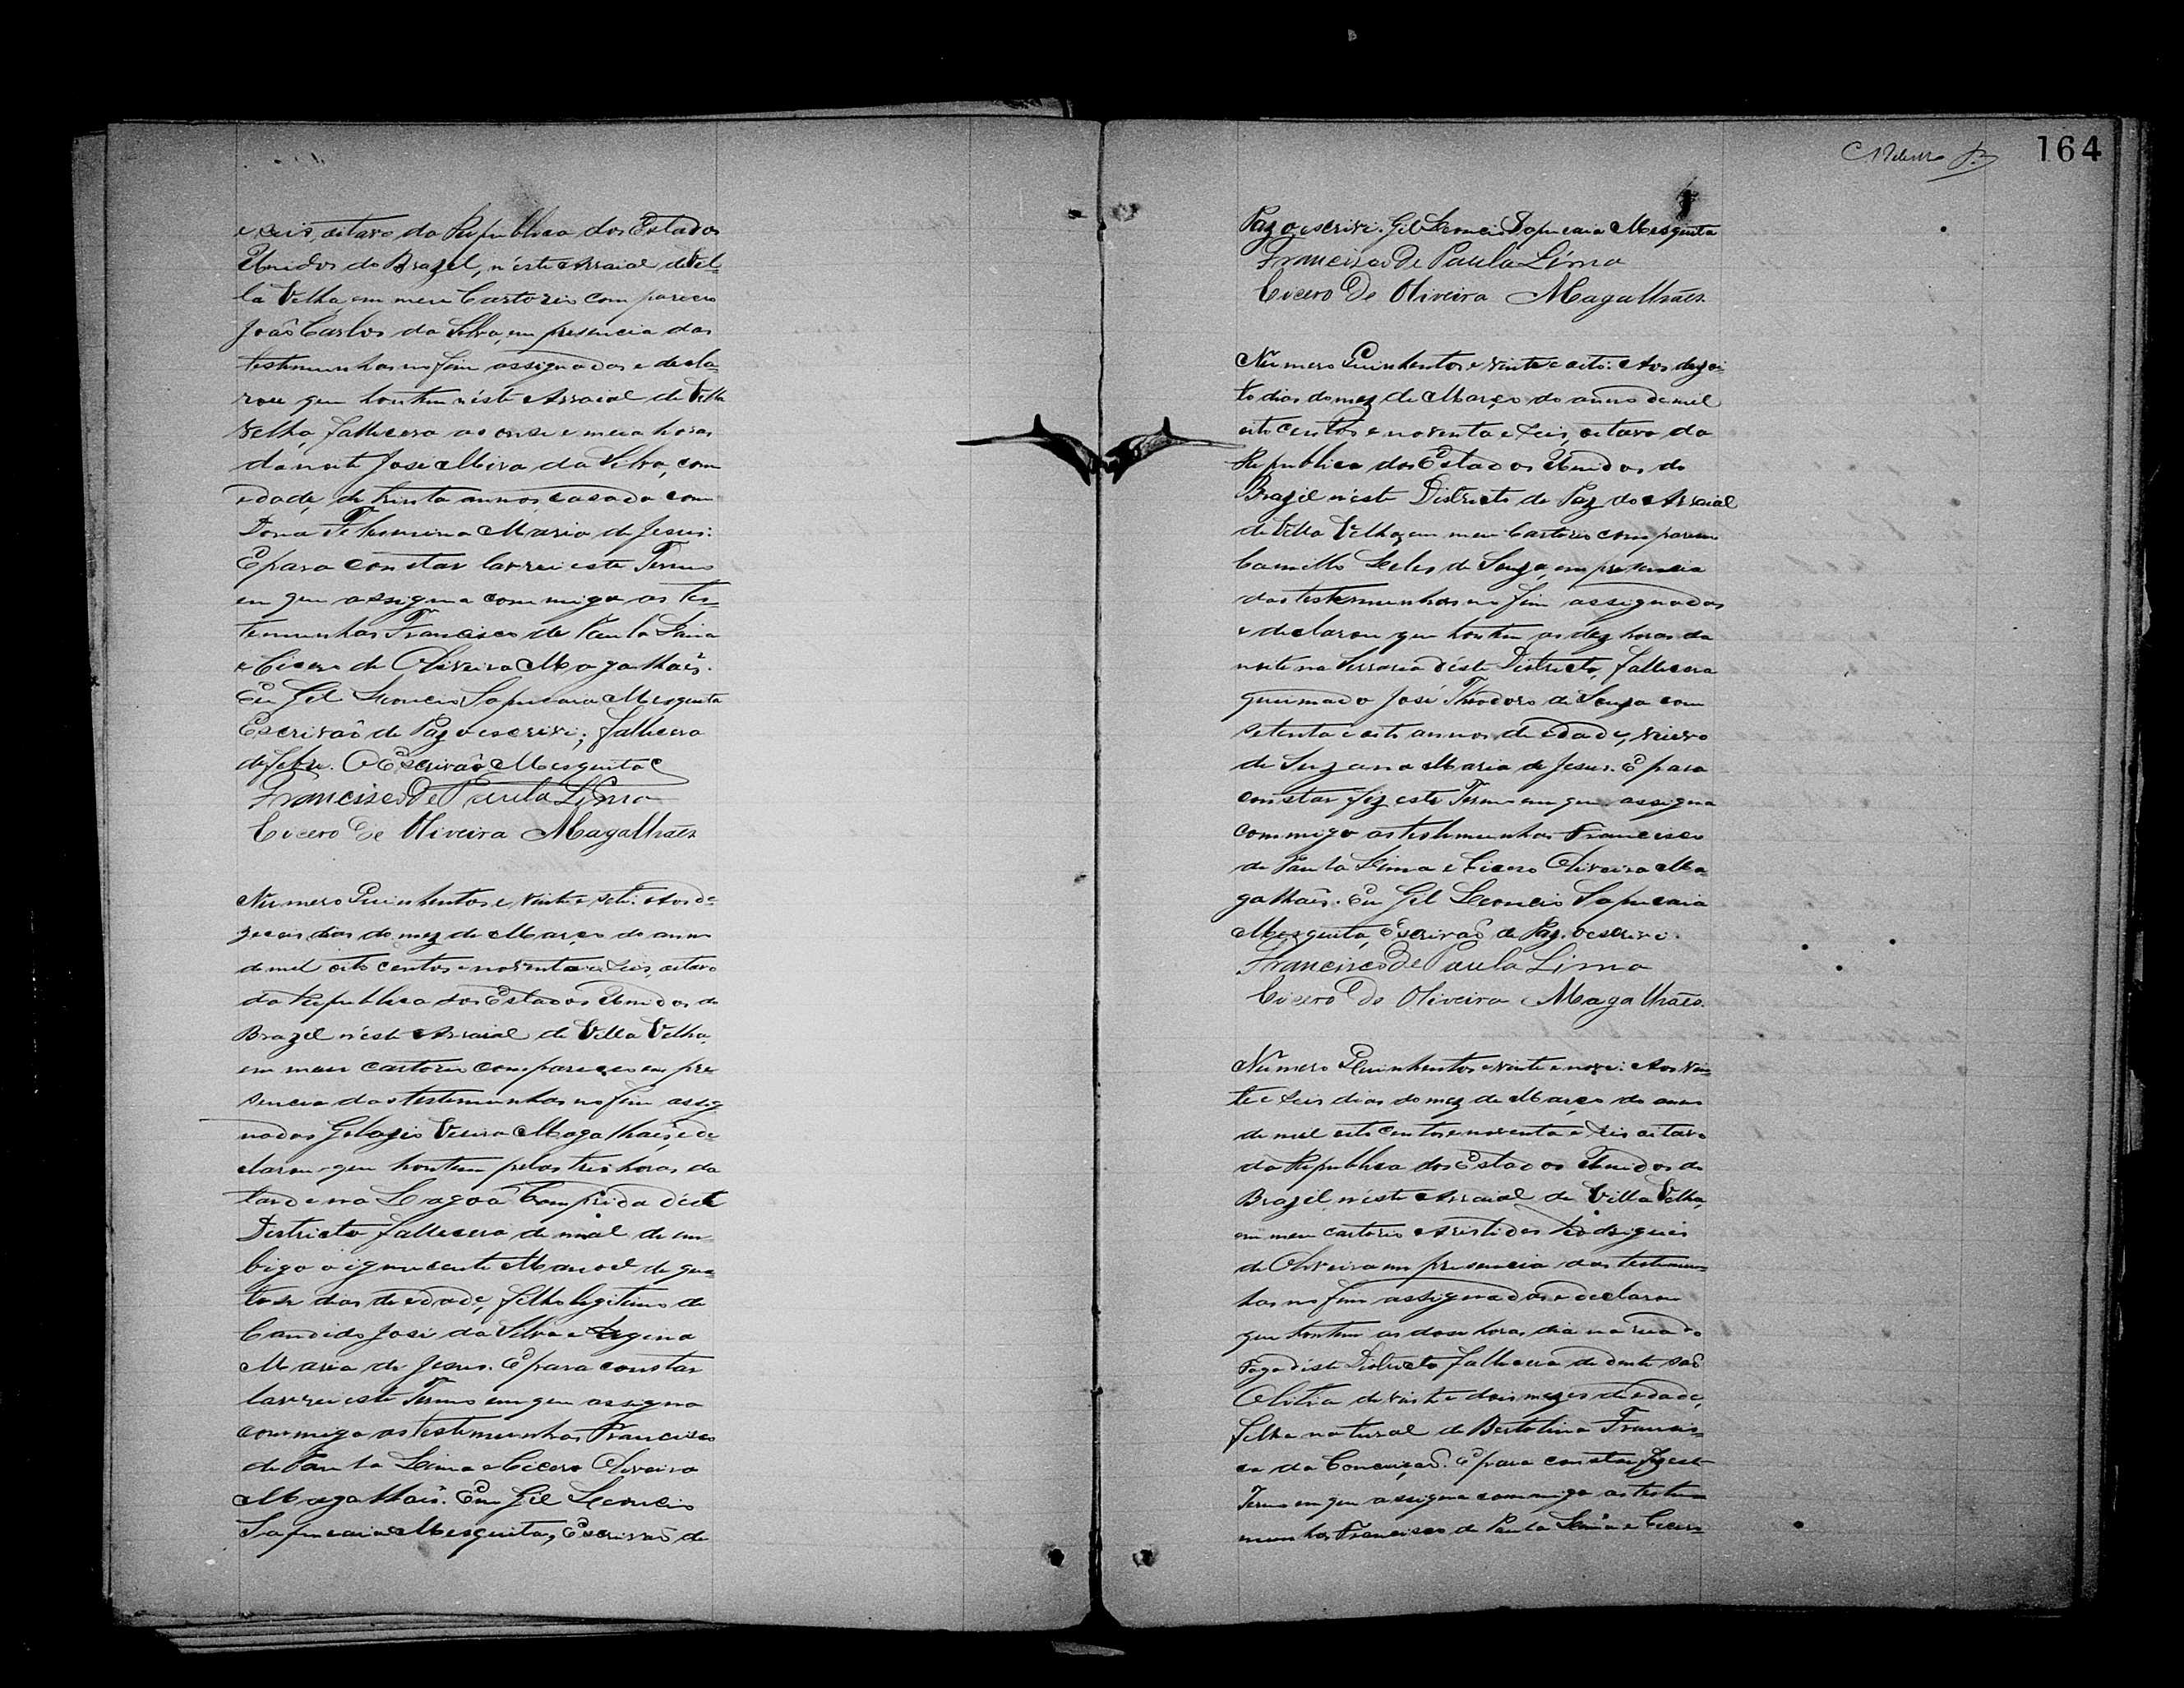 e seis, oitavo da Republica dos Estados
Unidos do Brazil, n'este Arraial de Vil-
la Velha, em meu Cartorio compareceo
João Carlos da Silva, em presencia das
testemunhas no fim assignadas e decla-
rou que hontem n'este Arraial de Villa
Velha, fallecera as onze e meia horas
da noite José da Silva, com
edade de trinta annos, casado com
Dona Maria de Jesus.
E para constar lavrei este Termo
em que assigna commigo as tes-
temunhas Francisco de Paula Lima
e Cicero de Oliveira Magalhães.
Eu Gil Leoncio Sapucaia Mesquita
Escrivão de Paz o escrivi; fallecera
de febre. O Escrivão Mesquita
Francisco de Paula Lima
Cicero de Oliveira Magalhães
Numero Quinhentos e vinte e sete. Aos de-
zeceis dias do mez de Março do anno
de mil oito centos e noventa e seis, oitavo
da Republica dos Estados Unidos do
Brazil n'este Arraial de Villa Velha,
em meu cartorio compareceo em pre-
sencia das testemunhas no fim assig-
nadas Gelazio Vieira Magalhães, e de-
clarou que hontem pelas tres horas da
tarde na Lagoa Comprida d'este
Districto fallecera de mal de um-
bigo o ignucente Manoel de qua-
torse dias de edade, filho legitimo de
Candido José da Silva e Regina
Maria de Jesus. E para constar
lavrei este Termo em que assigna
commigo as testemunhas Francisco
de Paula Lima e Cicero Oliveira
Magalhães. Eu Gil Leoncio
Sapucaia Mesquita, Escrivão de
164
Paz o escrivi. Gil Leoncio Sapucaia Mesquita
Francisco de Paula Lima
Cicero de Oliveira Magalhães
Numero Quinhentos e vinte e oito. Aos dezoi-
to dias do mez de Março do anno de mil
oito centos e noventa e seis, oitavo da
Republica dos Estados Unidos do
Brazil n'este Districto de Paz do Arraial
de Villa Velha, em meu Cartorio compareceo
Camillo Leles de Souza, em presencia
das testemunhas no fim assignadas
e declarou que hontem as dez horas da
noite na Serraria d'este Districto, fallecera
queimado José Theodoro de Souza com
setenta e oito annos de edade, viuvo
de Suzana Maria de Jesus. E para
constar fiz este Termo em que assigna
commigo as testemunhas Francisco
de Paula Lima e Cicero Oliveira Ma-
galhães. Eu Gil Leoncio Sapucaia
Mesquita, Escrivão de Paz o escrivi.
Francisco de Paula Lima
Cicero de Oliveira Magalhães.
Numero Quinhentos e vinte e nove. Aos vin-
te e seis dias do mez de Março do anno
de mil oito centos e noventa e seis oitavo
da Republica dos Estados Unidos do
Brazil, n'este Arraial de Villa Velha,
em meu cartorio Aristides Rodrigues
de Oliveira em presencia das testemu-
has no fim assignadas e declarou
que hontem as dose horas dia na rua do
Fogo d'este Districto fallecera de dente
de vinte e dois mezes de edade,
filha natural de Bertolina Francis-
ca da Conceição. E para constar fiz este
Termo em que assigna commigo as teste-
munhas Francisco de Paula Lima e Cicero